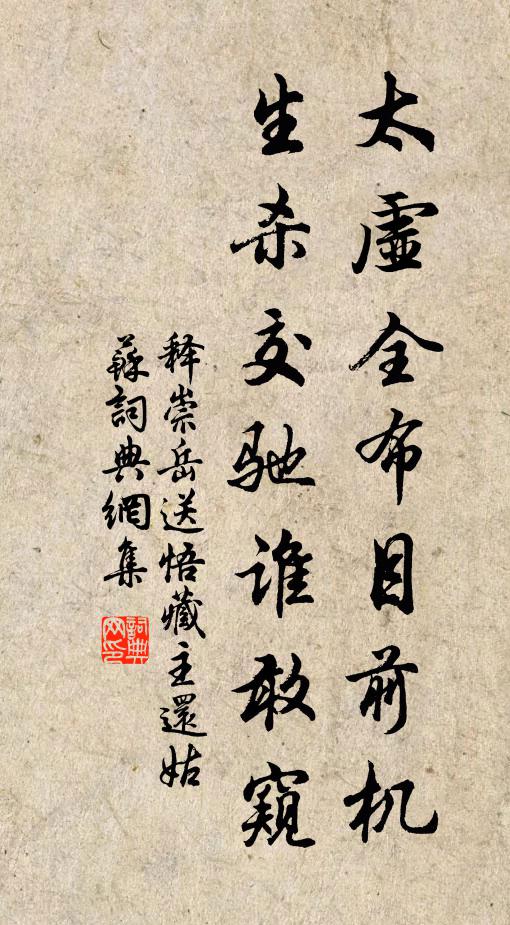 太虛全布目前机
生杀交驰谁敢窺
释崇岳送悟藏主還姑
蘇詞典網集
詞典
网印